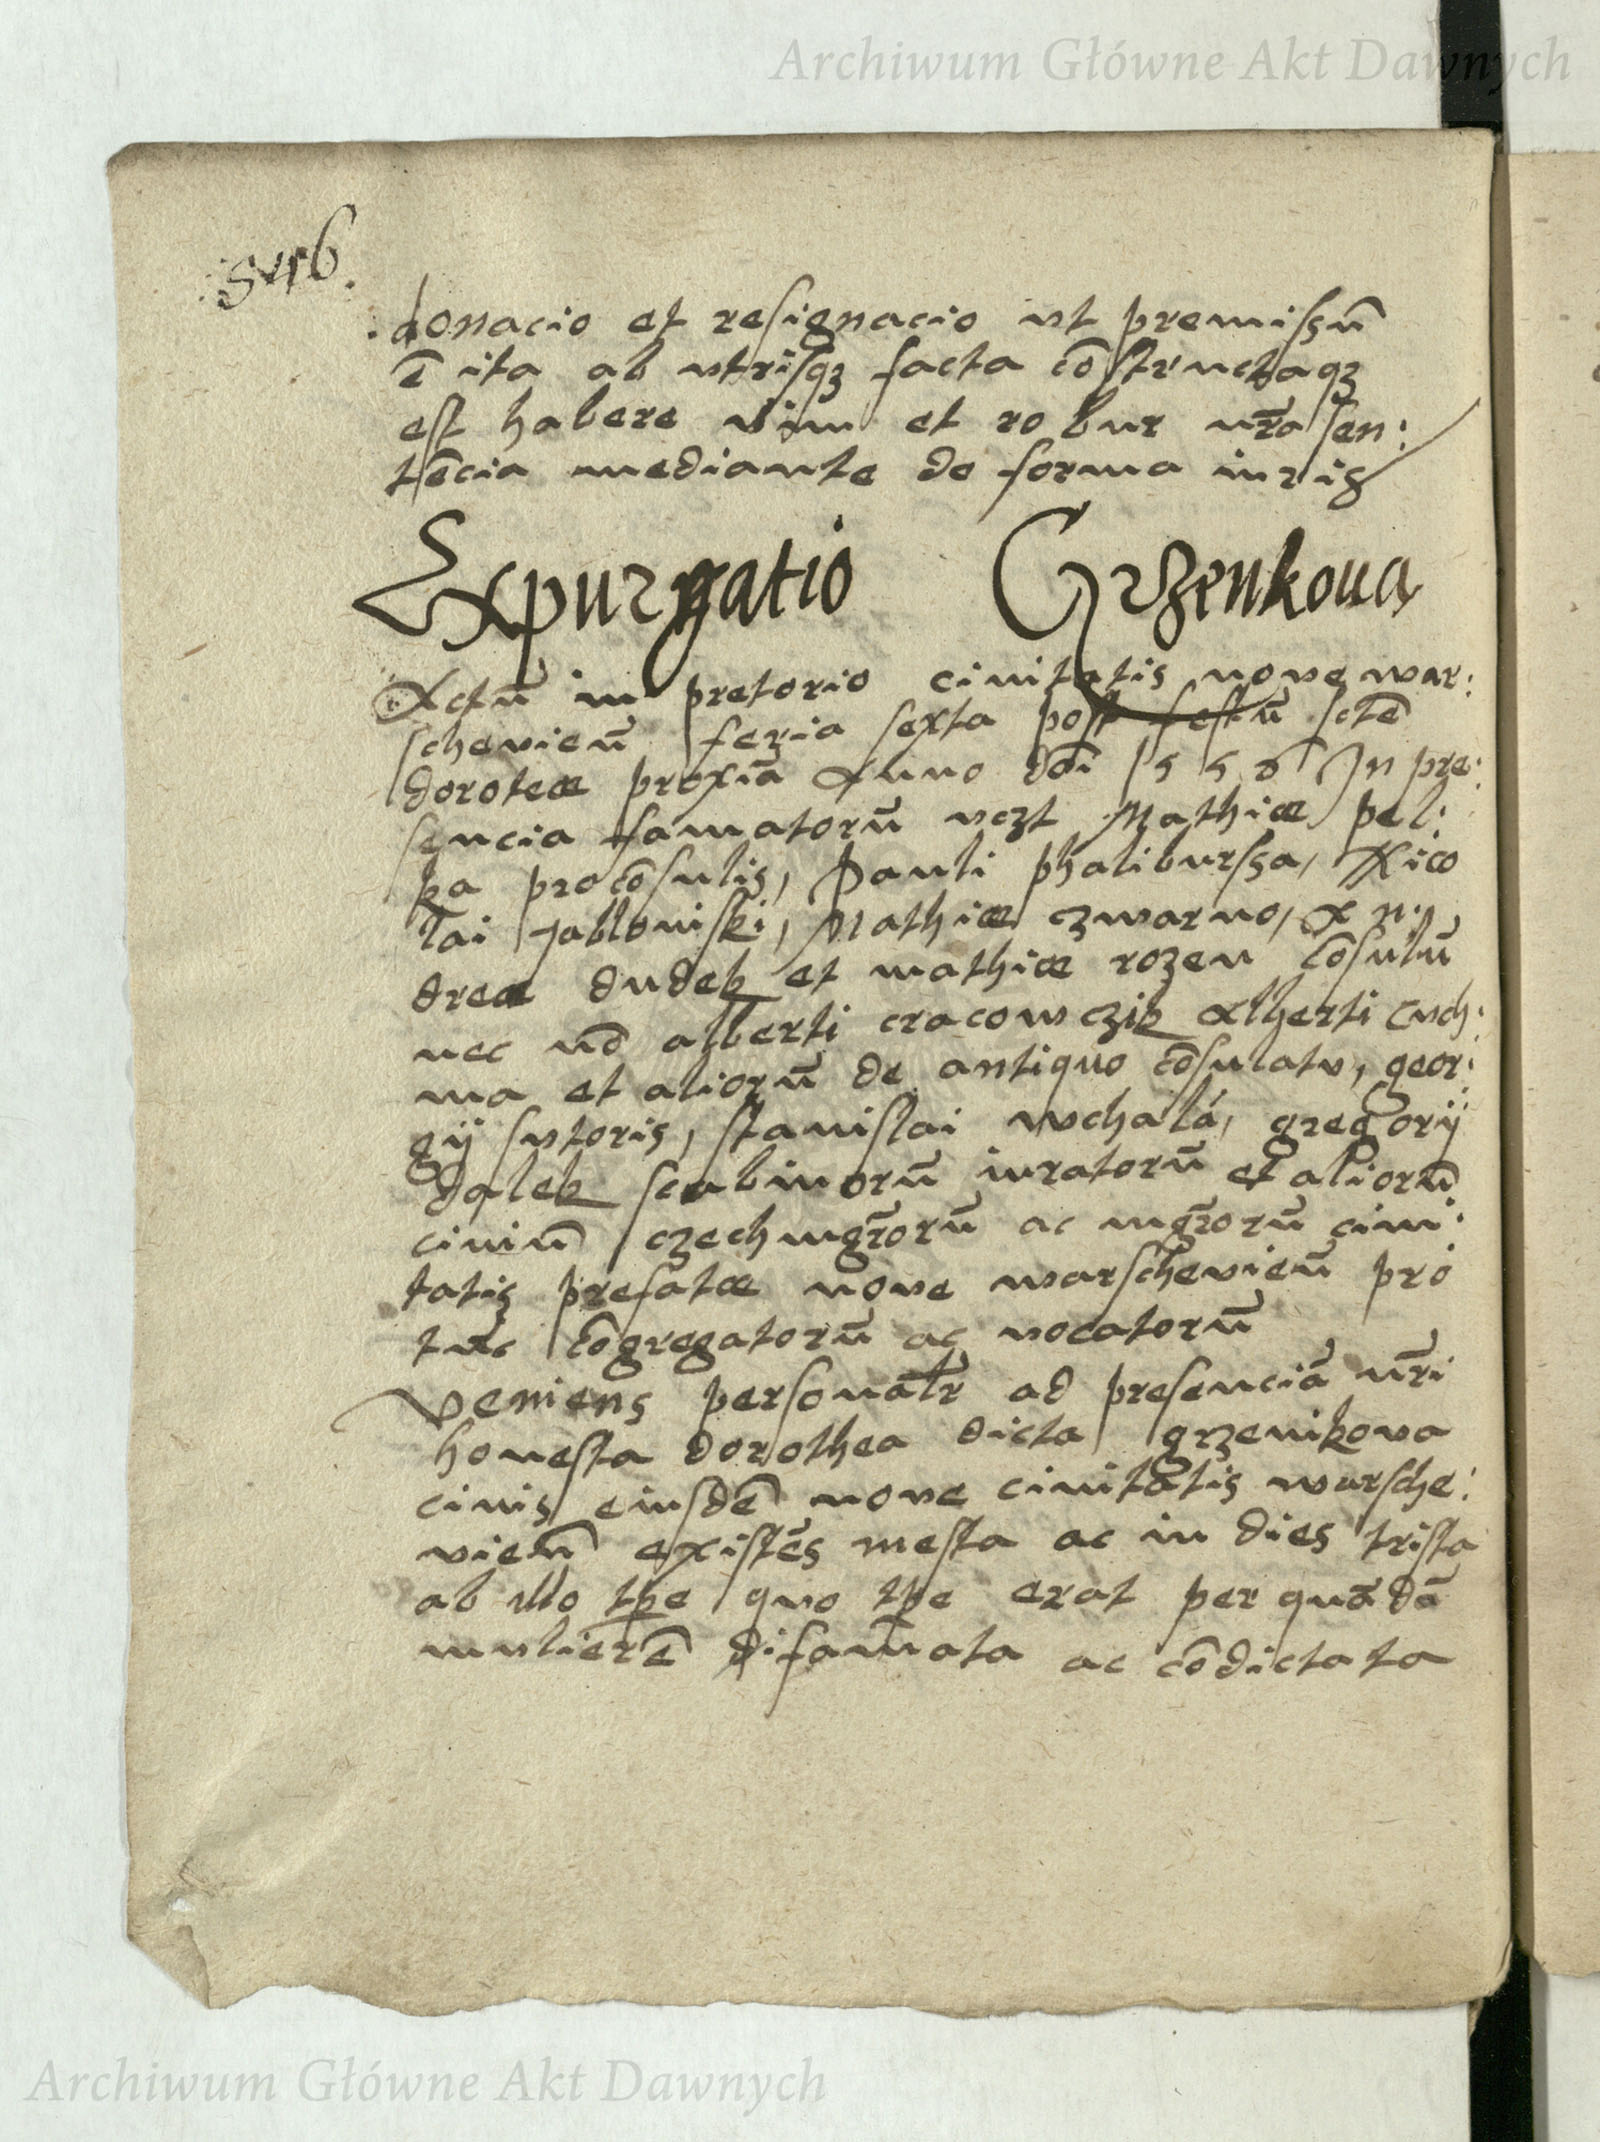 Archiwum Główne Akt Dawnych
donacio et resignacio ut premissū
ē ita ab utrisqȝ facta cōstructaqȝ
est habere vim et robur nr̄a sen:
tēcia mediante de forma iuris
Expurgatio Grzenkoua
Actū in pretorio civitatis nove war:
schevieñ feria sexta post festū sctē
doroteæ proxiā Anno dōi In pre:
sencia famatorū vczt Mathiæ pel:
ka procōsulis, Pauli phaliburssa, Nico
lai Jabloniski, Mathiæ czwarno, An:
dreæ dudek et mathiæ rozen cōsulū
nec nō alberti cracowczik Alberti cuch:
ma et aliorū de antiquo cōsulatu, geor:
gij sutoris, stanislai uchala, gregorij
dalek scabinorū iuratorū et aliorū
civiū czechmgr̄orū ac mgr̄orū civi:
tatis prefatæ nove warschevieñ pro
tūc cōgregatorū ac vocatorū
Veniens personalr̄ ad presenciā nr̄i
honesta dorothea dicta grzenikova
civis eiusdē nove civitatis warsche:
vieñ existēs mesta ac in dies trista
ab illo tp̄e quo tp̄e erat per quādā
mulierē difamata ac cōdictata
Archiwum Główne Akt Dawnych